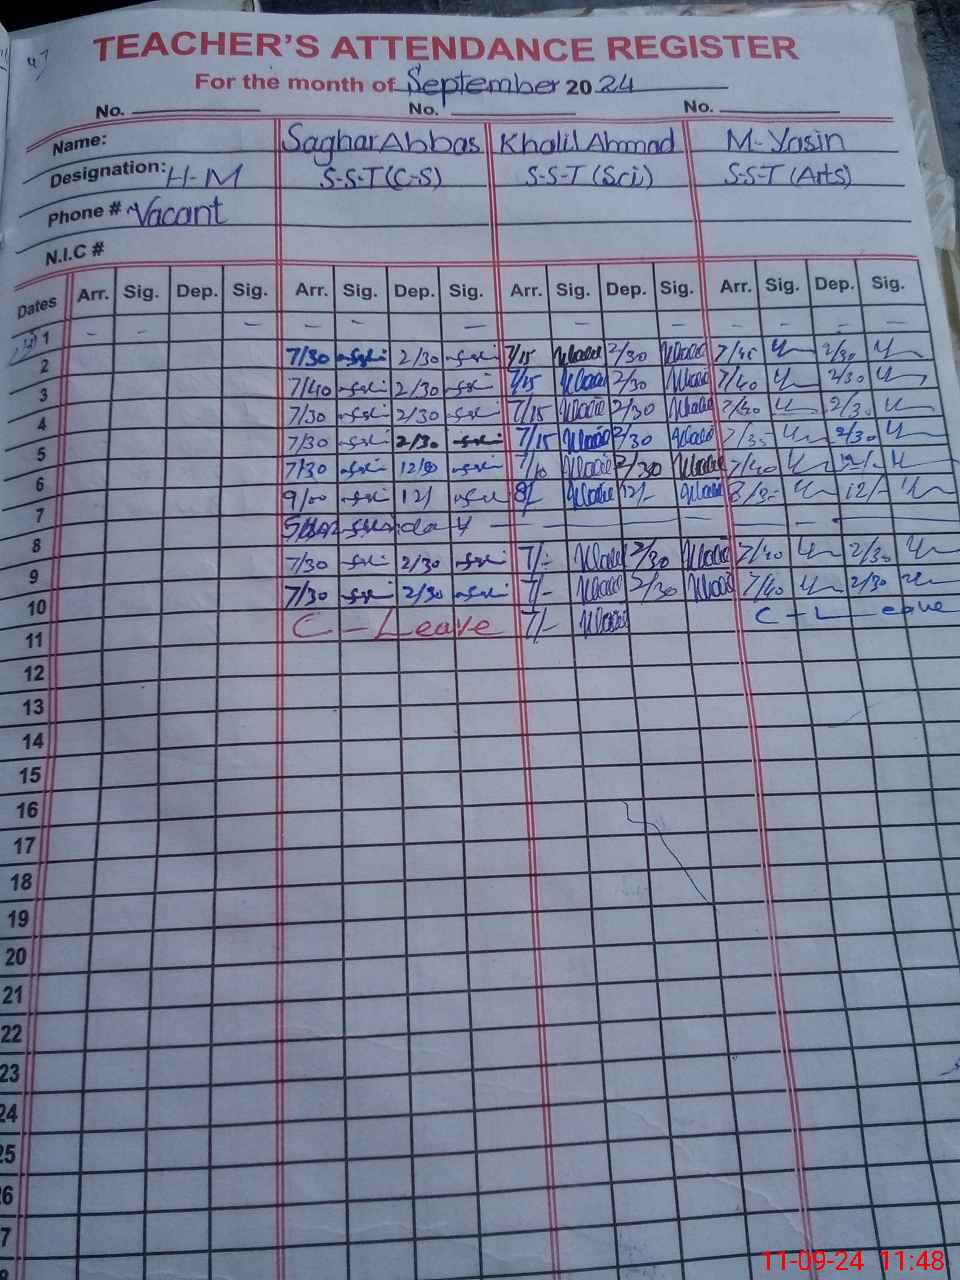 TEACHER'S ATTENDANCE REGISTER
For the month of September 2024
No. No. No.
Name: Saghar Abbas Khalil Ahmad M-Yasin
Designation: H-M S-S-T (C-S) S-S-T (Sci) S-S-T (Arts)
Phone # Vacant
N.I.C #
Dates Arr. Sig. Dep. Sig. Arr. Sig. Dep. Sig. Arr. Sig. Dep. Sig. Arr. Sig. Dep. Sig.
1 - - - - - - - - - - -
2 7/30 2/30 7/15 2/30 7/45 2/30
3 7/40 2/30 7/15 2/30 7/40 2/30
4 7/30 2/30 7/15 2/30 7/40 2/30
5 7/30 2/30 7/15 2/30 7/35 2/30
6 7/30 7/10 7/40 12/-
7 9/00 12/ 8/ 12/- 12/-
8 Sunday
9 7/30 2/30 7/- 2/30 7/40 2/30
10 7/30 2/30 7/- 2/30 7/40 2/30
11 C-Leave 7/- C-Leave
12
13
14
15
16
17
18
19
20
21
22
23
24
25
6
7
11-09-24 11:48